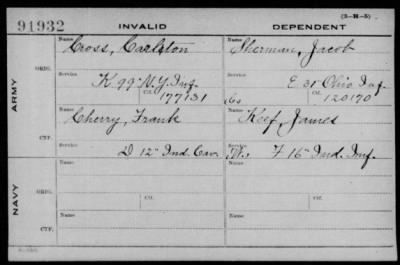 (3-H-5)
91932 INVALID DEPENDENT
Name Name
Cross, Carlston Sherman, Jacob
ORIG.
Service Service
K 99" N.Y. Inf. E 31 Ohio Inf.
Ctf. Ctf.
177131 120170
ARMY
Name Name
Cherry, Frank Keef, James
CTF.
Service Service
D 12" Ind. Cav. F 16" Ind. Inf.
Name Name
ORIG.
Service Service
Ctf. Ctf.
NAVY
Name Name
CTF.
Service Service